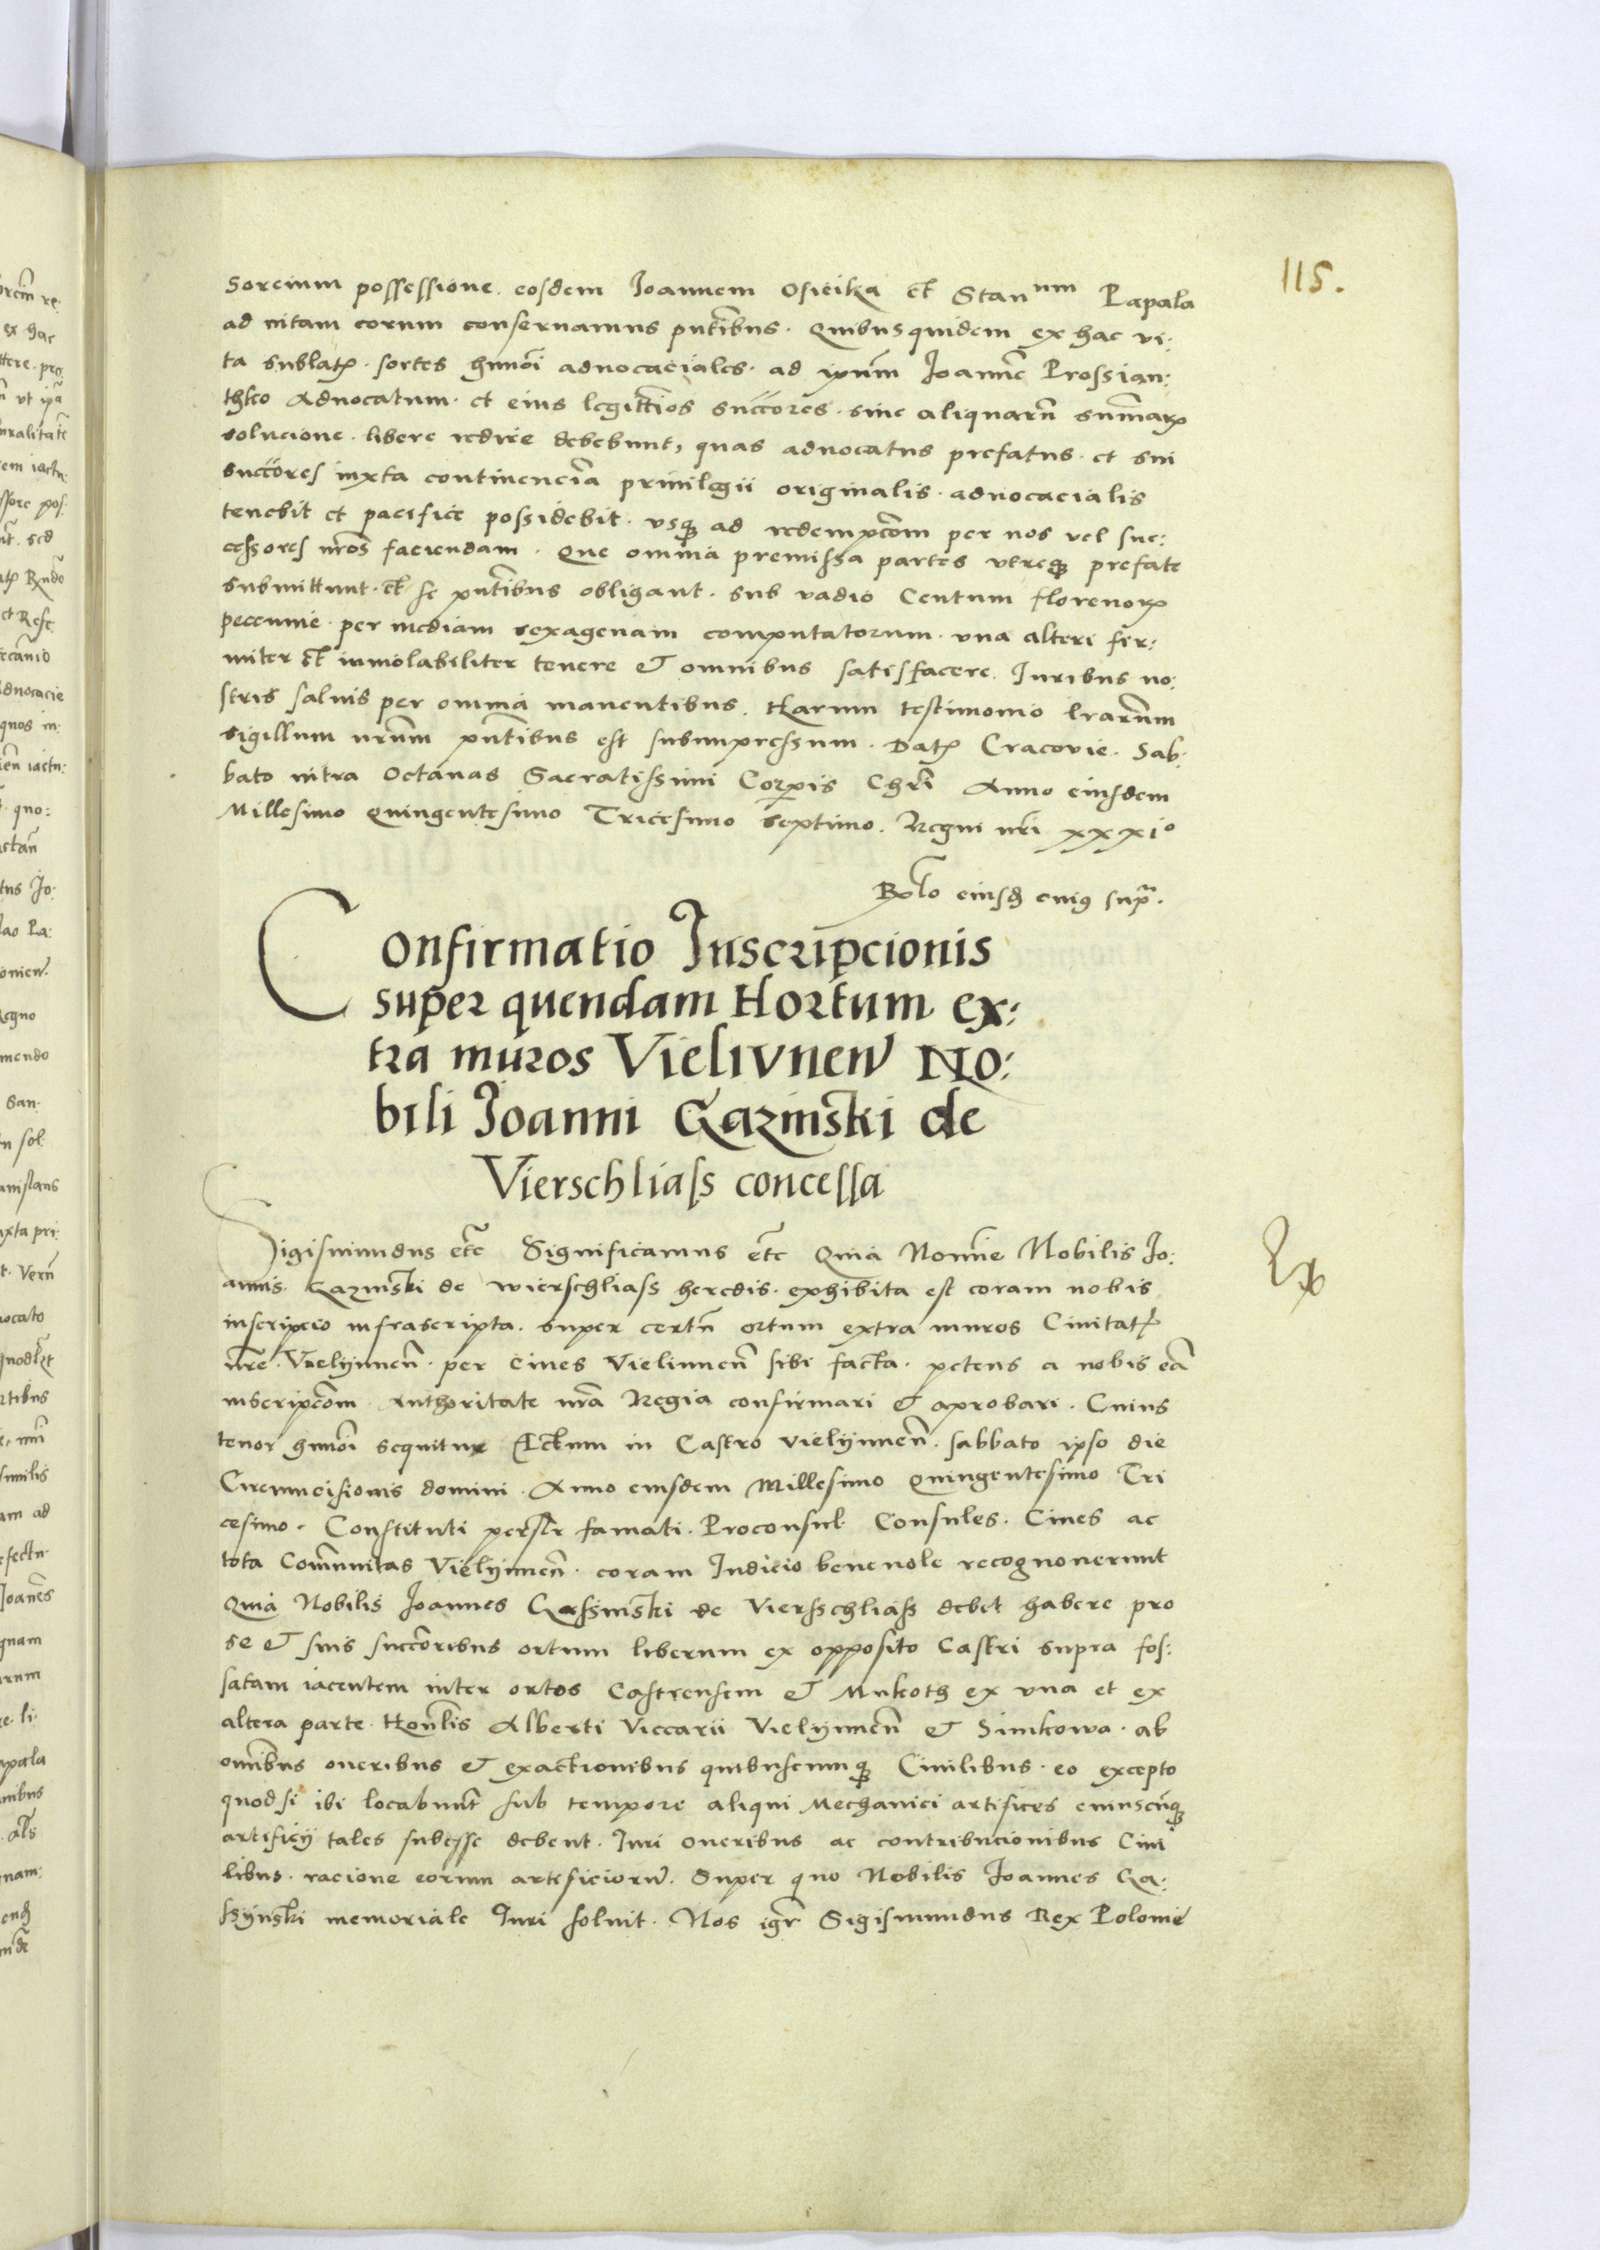 115.
sorcium possessione. eosdem Joannem Osicika et Stan^num Papala
ad vitam eorum conservamus pntibus. Quibusquidem ex hac vi:
ta sublatis. sortes hmoi advocaciales. ad ipsum Joannẽ Prossian:
thko Advocatum. et eius legittios succores. sine aliquarũ summarum
solucione. libere redire debebunt, quas advocatus prefatus. et sui
succores iuxta continenciã privilegii originalis. advocacialis
tenebit et pacifice possidebit. vsque ad redempcõm per nos vel suc:
cessores nros faciendam. Que omnia premissa partes vtreque prefate
submittunt. et se pntibus obligant. sub vadio Centum florenorum
peccunie. per mediam sexagenam computatorum. vna alteri fir:
miter et inviolabiliter tenere & omnibus satisfacere. Juribus no:
stris salvis per omnia manentibus. Harum testimonio lrarum
sigillum nrum pntibus est subimpressum. Datum Cracovie. Sab:
bato intra Octavas Sacratissimi Corpis Chri Anno eiusdem
Millesimo Quingentesimo Tricesimo septimo. Regni nri xxxi°
Rlo eiusd cuius supra.
Confirmatio Inscripcionis
super quendam Hortum ex:
tra muros Vieliunen No:
bili Joanni Gazinski de
Vierschliass concessa
Ex
Sigismundus etc Significamus etc Quia Nomine Nobilis Jo:
annis. Gazinski de wierschliass heredis. exhibita est coram nobis
inscripcio infrascripta. super certũ ortum extra muros Civitatis
nre. Vielijunen. per cives Vieliunen sibi facta. petens a nobis eã
inscripcõm Authoritate nra Regia confirmari & aprobari. Cuius
tenor hmoi sequitur Actum in Castro vielijunen. sabbato ipso die
Circumcisionis domini. Anno eiusdem Millesimo Quingentesimo Tri
cesimo. Constituti personaliter famati. Proconsul Consules. Cives ac
tota Communitas Vielijunen. coram Judicio benevole recognoverunt
Quia Nobilis Joannes Gassinski de Vierschliass debet habere pro
se & suis succoribus ortum liberum ex opposito Castri supra fos:
satam iacentem inter ortos Castrensem & Mukoth ex vna et ex
altera parte. Honlis Alberti Viccarii Vielijunen & Simkowa. ab
omnibus oneribus & exactionibus quibuscumque Civilibus. eo excepto
quod si ibi locabunt sub tempore aliqui Mechanici artifices cuiuscumque
artificij tales subesse debent. Juri oneribus ac contribucionibus Civi
libus. racione eorum artificiorum. Super quo Nobilis Joannes Ga:
ssijnski memoriale Juri solvit. Nos igr Sigismundus Rex Polonie